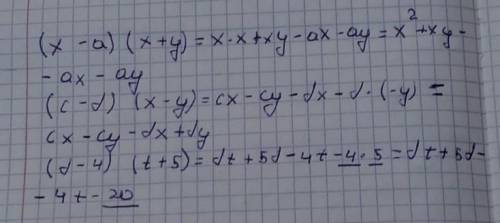 (x - a) (x + y) = x · x + xy - ax - ay = x² + xy -
- ax - ay
(c - d) (x - y) = cx - cy - dx - d · (-y) =
cx - cy - dx + dy
(d - 4) (t + 5) = dt + 5d - 4t - 4 · 5 = dt + 5d -
- 4t - 20